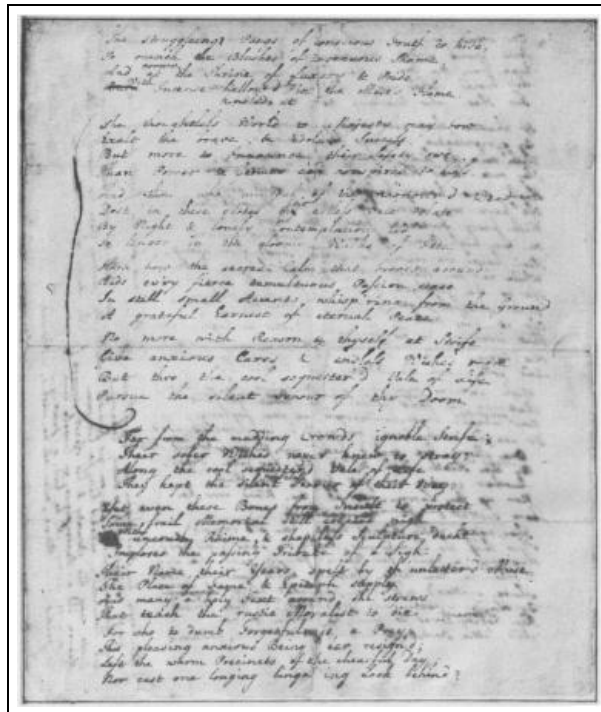 The struggleing Pangs of conscious Truth to hide,
To quench the Blushes of ingenuous Shame,
And at the Shrine of Luxury & Pride
With Incense hallowd in the Muse's Flame
The thoughtless World to Majesty may bow
Exalt the brave, & idolize Success
But more to Innocence their Safety owe
Than Power & Genius e'er conspired to bless
And thou who mindful of the unhonour'd Dead
Dost in these Notes their artless Tale relate
By Night & lonely Contemplation led
To linger in the gloomy Walks of Fate
Hark how the sacred Calm, that broods around
Bids ev'ry fierce tumultuous Passion cease
In still small Accents whisp'ring from the Ground
A grateful Earnest of eternal Peace
No more with Reason & thyself at Strife
Give anxious Cares & endless Wishes room
But thro' the cool sequester'd Vale of Life
Pursue the silent Tenour of thy Doom
Far from the madding Crowds ignoble Strife;
Their sober Wishes never knew to stray:
Along the cool sequester'd Vale of Life
They kept the silent Tenour of their Way
Yet even these Bones from Insult to protect
Some frail Memorial still erected nigh
With uncouth Rhime, & shapeless Sculpture deckt
Implores the passing Tribute of a Sigh
Their Name, their Years, spelt by th' unletter'd Muse
The Place of Fame, & Epitaph supply
And many a holy Text around she strews
That teach the rustic Moralist to die
For who to dumb Forgetfulness, a Prey,
This pleasing anxious Being e'er resign'd;
Left the warm Precincts of the chearful Day,
Nor cast one longing lingring Look behind?